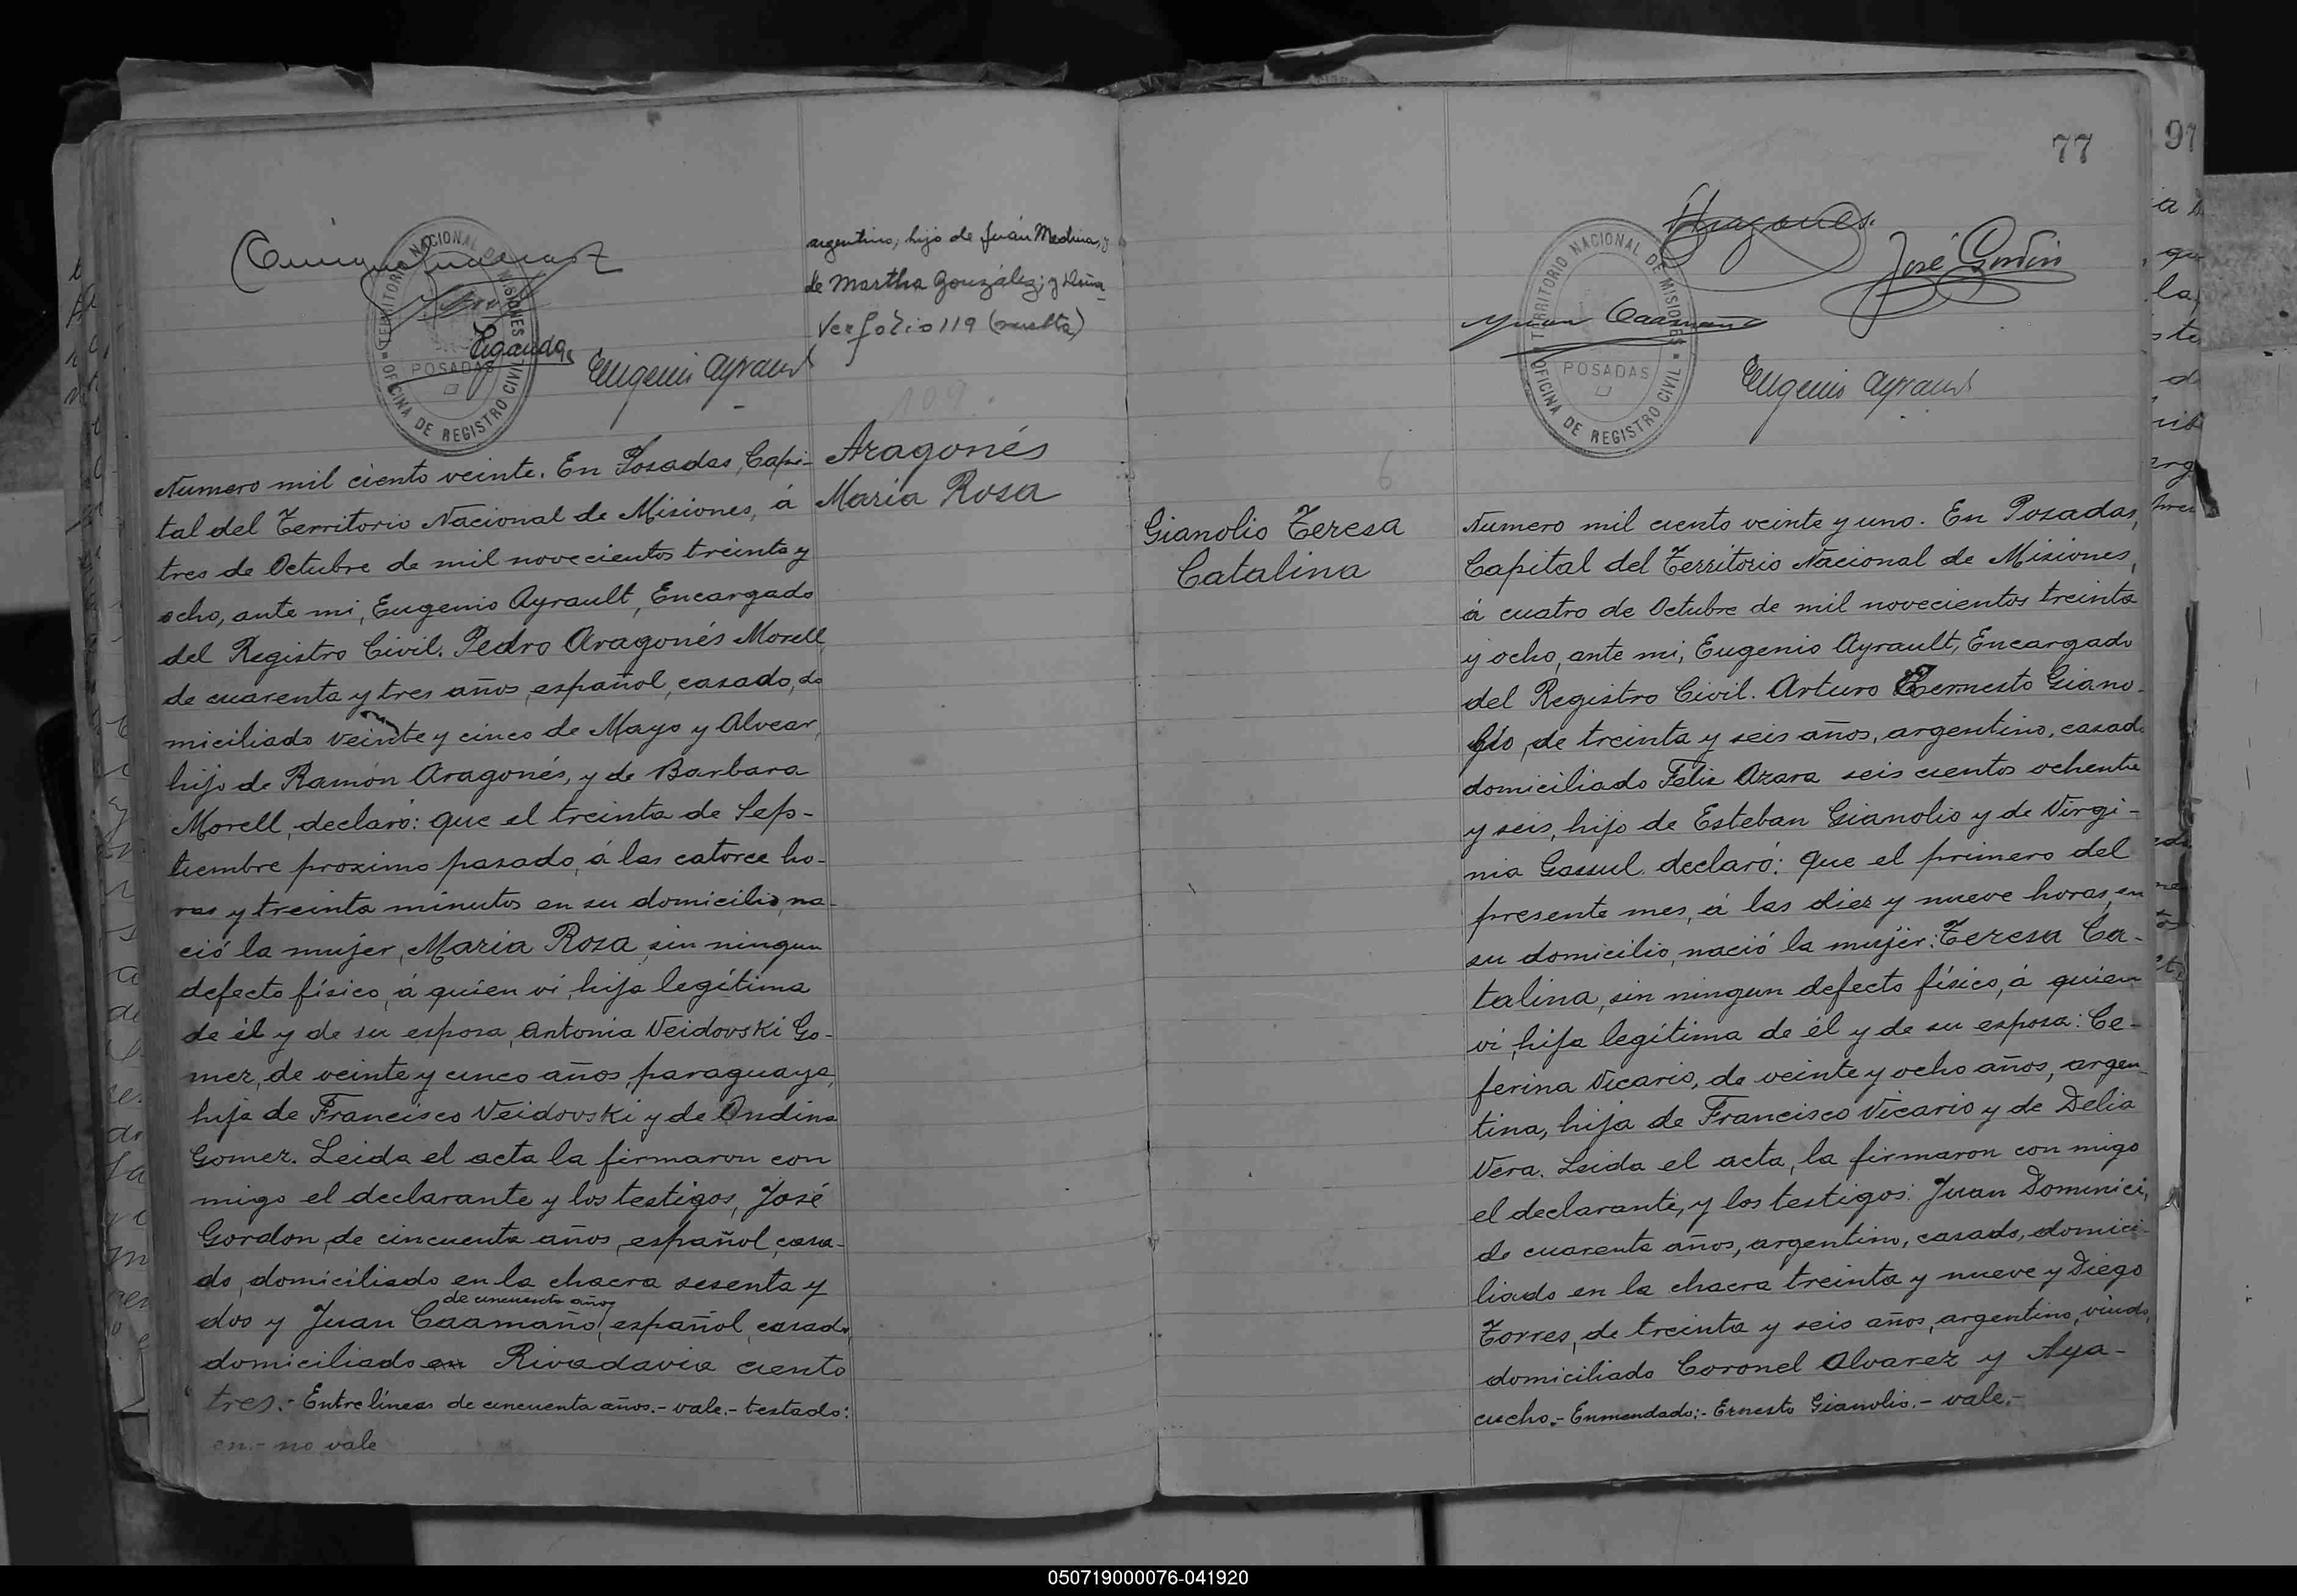 TERRITORIO NACIONAL DE MISIONES
OFICINA DE REGISTRO CIVIL
POSADAS
Eugenio Ayrault
argentino, hijo de Juán Medina, y
de Martha González; y Doña
Ver folio 119 (vuelta)
109.
Aragonés
Maria Rosa
Numero mil ciento veinte. En Posadas, Capi-
tal del Territorio Nacional de Misiones, á
tres de Octubre de mil novecientos treinta y
ocho, ante mi, Eugenio Ayrault, Encargado
del Registro Civil. Pedro Aragonés Morell,
de cuarenta y tres años, español, casado, do
miciliado veinte y cinco de Mayo y Alvear,
hijo de Ramón Aragonés, y de Barbara
Morell, declaró: que el treinta de Sep-
tiembre proximo pasado, á las catorce ho-
ras y treinta minutos en su domicilio, na-
ció la mujer, Maria Rosa, sin ningun
defecto físico, á quien vi, hija legítima
de él y de su esposa, Antonia Veidovski Go-
mez, de veinte y cinco años, paraguaya,
hija de Francisco Veidovski y de Ondina
Gomez. Leida el acta la firmaron con
migo el declarante y los testigos, José
Gordon, de cincuenta años, español, casa-
do, domiciliado en la chacra sesenta y
de cincuenta años
dos y Juan Caamaño, español, casado,
domiciliado en Rivadavia ciento
tres.- Entre líneas de cincuenta años.- vale.- testado:
en.- no vale
77
97
Aragones.
José Gordón
Juan Caamaño
TERRITORIO NACIONAL DE MISIONES
OFICINA DE REGISTRO CIVIL
POSADAS
Eugenio Ayrault
6
Gianolio Teresa
Catalina
Numero mil ciento veinte y uno. En Posadas,
Capital del Territorio Nacional de Misiones,
á cuatro de Octubre de mil novecientos treinta
y ocho, ante mi, Eugenio Ayrault, Encargado
del Registro Civil. Arturo Ernesto Giano-
lio, de treinta y seis años, argentino, casado
domiciliado Félix Azara seis cientos ochenta
y seis, hijo de Esteban Gianolio y de Virgi-
nia Gassul, declaró: que el primero del
presente mes, á las diez y nueve horas, en
su domicilio, nació la mujer: Teresa Ca-
talina, sin ningun defecto físico, á quien
vi, hija legítima de él y de su esposa: Ce-
ferina Vicario, de veinte y ocho años, argen-
tina, hija de Francisco Vicario y de Delia
Vera. Leida el acta, la firmaron con migo
el declarante, y los testigos: Juan Dominici,
de cuarenta años, argentino, casado, domici-
liado en la chacra treinta y nueve y Diego
Torres, de treinta y seis años, argentino, viudo,
domiciliado Coronel Alvarez y Aya-
cucho.- Enmendado:- Ernesto Gianolio.- vale.-
050719000076-041920